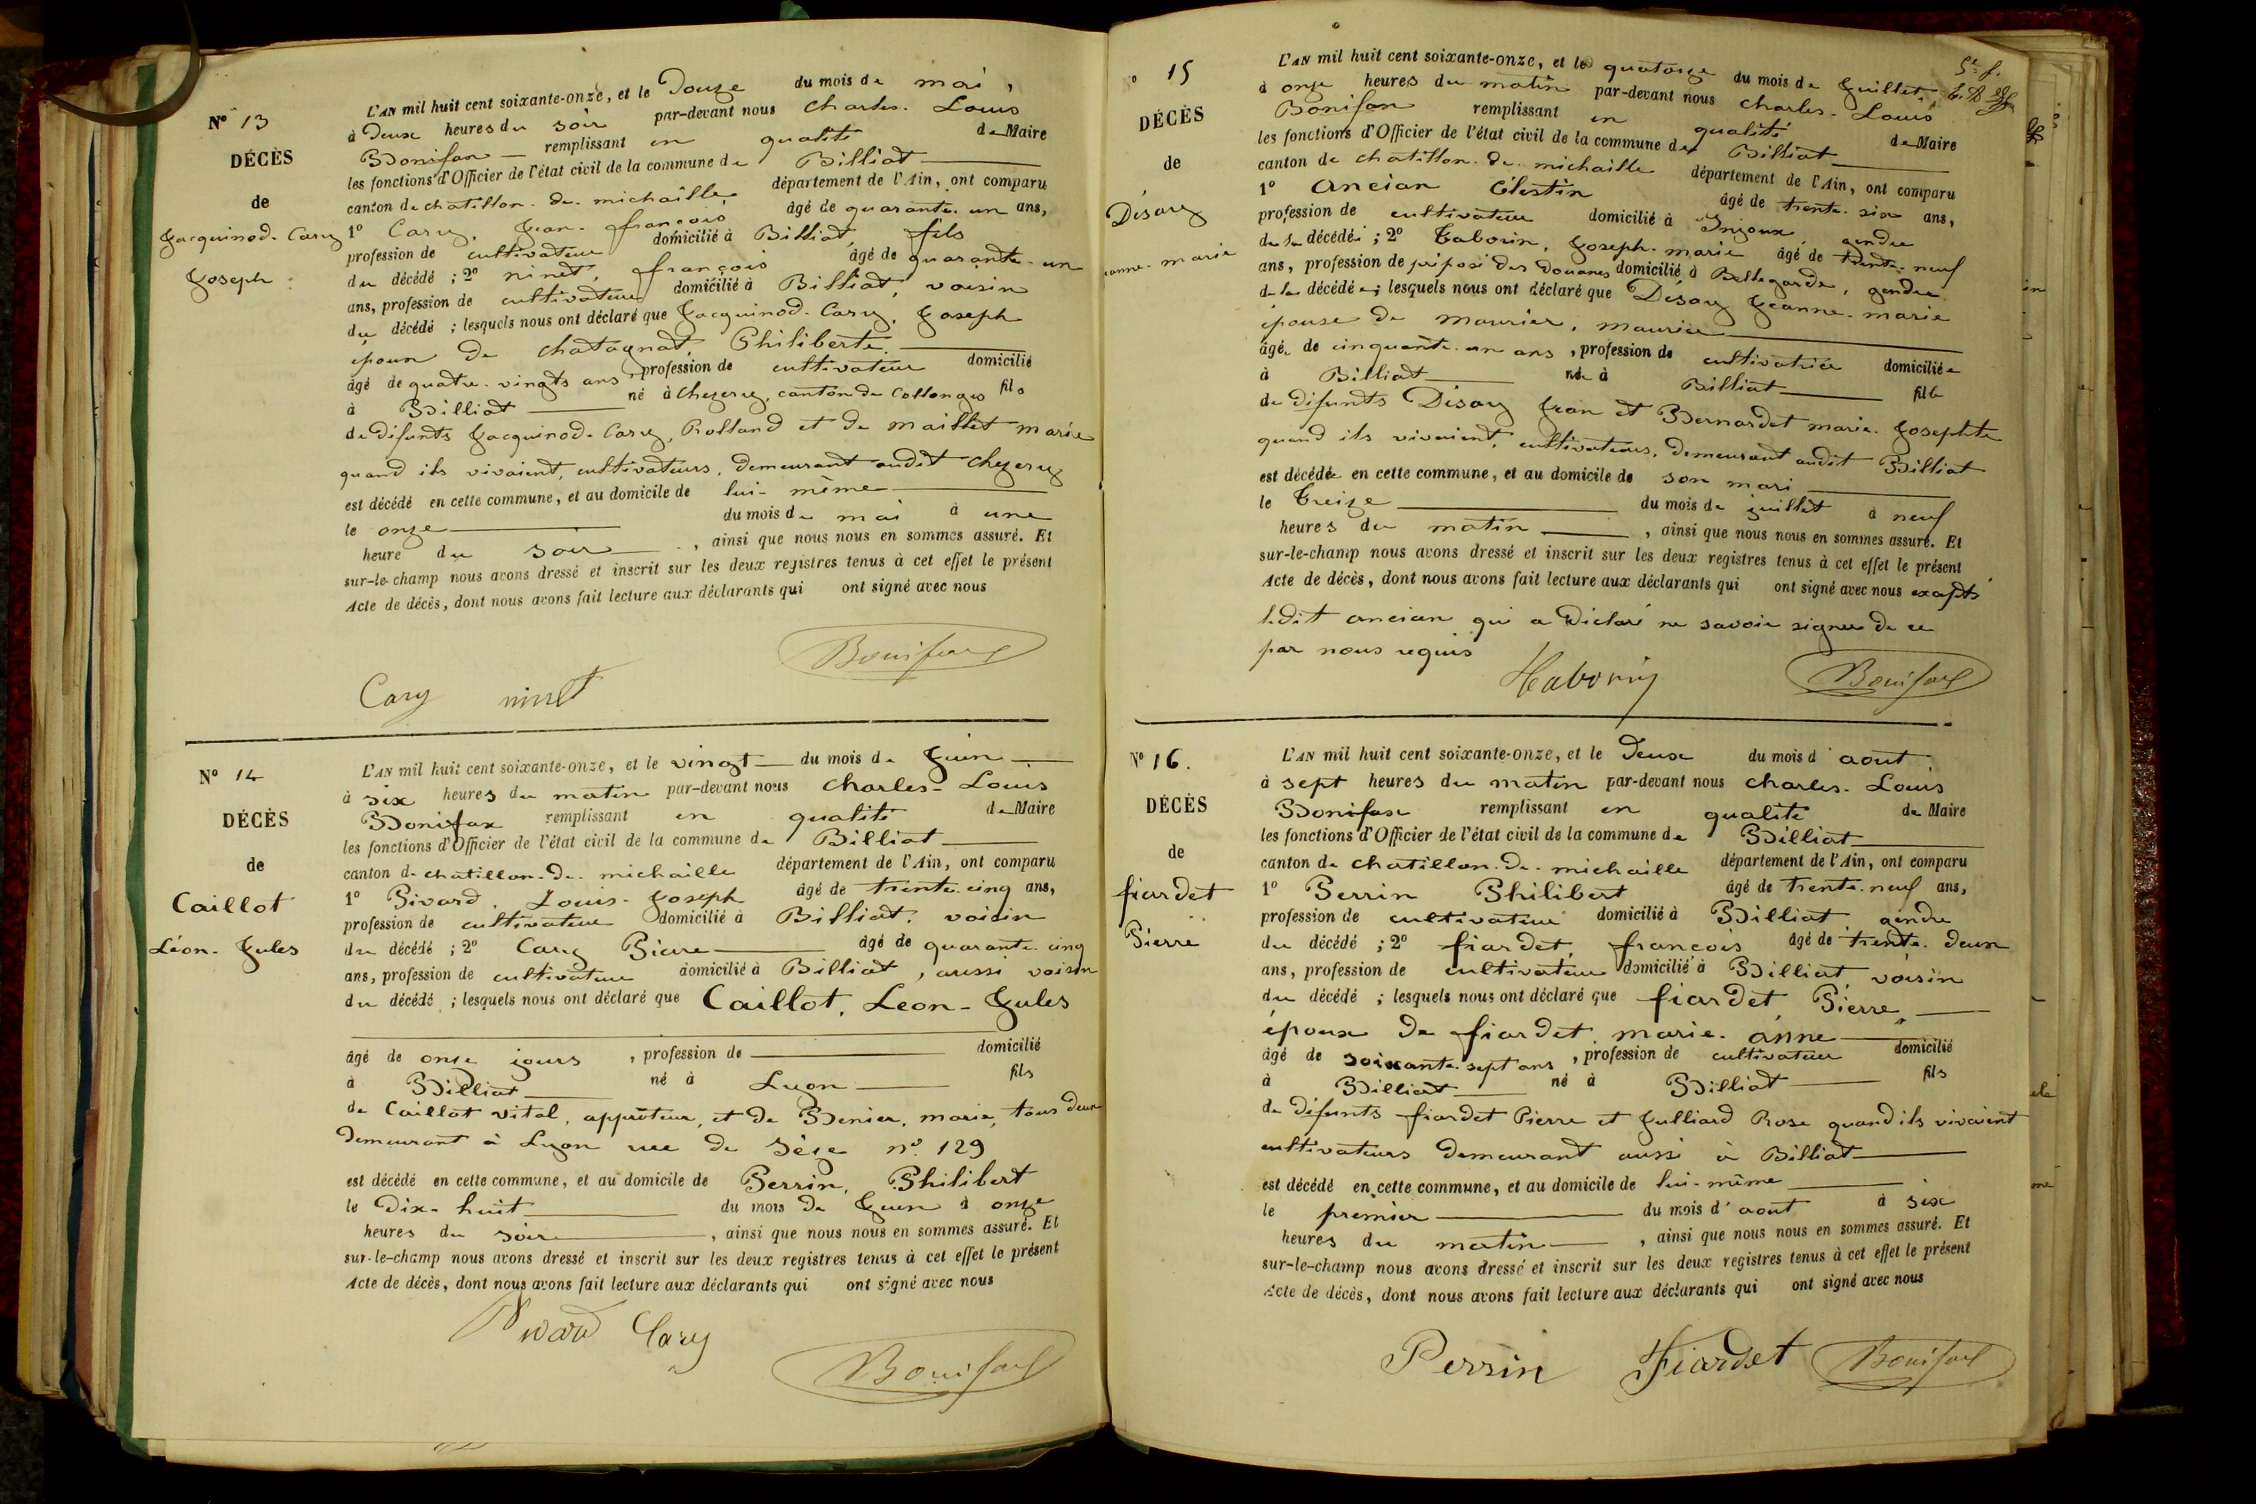 Nº 13
DÉCÈS
de
Jacquinod-Cary
Joseph
L'AN mil huit cent soixante-onze, et le Douze du mois de mai,
à Deux heures du soir par-devant nous Charles-Louis
Bonifax remplissant en qualité de Maire
les fonctions d'Officier de l'état civil de la commune de Billiat
canton de chatillon-de-michaille département de l'Ain, ont comparu
1º Cary, Jean-françois âgé de quarante-un ans,
profession de cultivateur domicilié à Billiat, fils
du décédé ; 2º ninet, françois âgé de quarante-un
ans, profession de cultivateur domicilié à Billiat, voisin
du décédé ; lesquels nous ont déclaré que Jacquinod-Cary, Joseph
époux de chatagnat, Philiberte
âgé de quatre-vingts ans, profession de cultivateur domicilié
à Billiat né à Chezery, canton de Collonges fils
de défunts Jacquinod-Cary, Rolland et de maillet marie
quand ils vivaient, cultivateurs, demeurant audit Chezery
est décédé en cette commune, et au domicile de lui-même
le onze du mois de mai à une
heure du soir, ainsi que nous nous en sommes assuré. Et
sur-le-champ nous avons dressé et inscrit sur les deux registres tenus à cet effet le présent
Acte de décès, dont nous avons fait lecture aux déclarants qui ont signé avec nous
Bonifax
Cary ninet
Nº 14
DÉCÈS
de
Caillot
Léon-Jules
L'AN mil huit cent soixante-onze, et le vingt du mois de Juin
à six heures du matin par-devant nous Charles-Louis
Bonifax remplissant en qualité de Maire
les fonctions d'Officier de l'état civil de la commune de Billiat
canton de chatillon-de-michaille département de l'Ain, ont comparu
1º Pivard, Louis-Joseph âgé de trente-cinq ans,
profession de cultivateur domicilié à Billiat, voisin
du décédé ; 2º Cary Pierre âgé de quarante-cinq
ans, profession de cultivateur domicilié à Billiat, aussi voisin
du décédé ; lesquels nous ont déclaré que Caillot, Leon-Jules
âgé de onze jours, profession de domicilié
à Billiat né à Lyon fils
de Caillot vital, apprêteur, et de Benier, marie, tous deux
demeurant à Lyon rue de Sèze nº 129
est décédé en cette commune, et au domicile de Perrin, Philibert
le Dix-huit du mois de Juin à onze
heures du soir, ainsi que nous nous en sommes assuré. Et
sur-le-champ nous avons dressé et inscrit sur les deux registres tenus à cet effet le présent
Acte de décès, dont nous avons fait lecture aux déclarants qui ont signé avec nous
Pivard Cary
Bonifax
º 15
DÉCÈS
de
Désary
eanne-marie
L'AN mil huit cent soixante-onze, et le quatorze du mois de Juillet,
à onze heures du matin par-devant nous Charles-Louis
Bonifax remplissant en qualité de Maire
les fonctions d'Officier de l'état civil de la commune de Billiat
canton de chatillon-de-michaille département de l'Ain, ont comparu
1º Ancian Célestin âgé de trente-six ans,
profession de cultivateur domicilié à Injoux, gendre
de la décédée ; 2º Taborin, Joseph-marie âgé de trente-neuf
ans, profession de préposé des Douanes domicilié à Bellegarde, gendre
de la décédée ; lesquels nous ont déclaré que Désary Jeanne-marie
épouse de maurier, maurice
âgée de cinquante-un ans, profession de cultivatrice domiciliée
à Billiat née à Billiat fille
de défunts Désary Jean et Bernardet marie-Josephte
quand ils vivaient, cultivateurs, demeurant audit Billiat
est décédée en cette commune, et au domicile de son mari
le treize du mois de juillet à neuf
heures du matin, ainsi que nous nous en sommes assuré. Et
sur-le-champ nous avons dressé et inscrit sur les deux registres tenus à cet effet le présent
Acte de décès, dont nous avons fait lecture aux déclarants qui ont signé avec nous excepté
ledit ancian qui a déclaré ne savoir signer de ce
par nous requis
Taborin Bonifax
Nº 16.
DÉCÈS
de
fiardet
Pierre
L'AN mil huit cent soixante-onze, et le Deux du mois d'aout
à sept heures du matin par-devant nous Charles-Louis
Bonifax remplissant en qualité de Maire
les fonctions d'Officier de l'état civil de la commune de Billiat
canton de chatillon-de-michaille département de l'Ain, ont comparu
1º Perrin Philibert âgé de trente-neuf ans,
profession de cultivateur domicilié à Billiat gendre
du décédé ; 2º fiardet, françois âgé de trente-deux
ans, profession de cultivateur domicilié à Billiat voisin
du décédé ; lesquels nous ont déclaré que fiardet, Pierre,
époux de fiardet marie-anne
âgé de soixante-sept ans, profession de cultivateur domicilié
à Billiat né à Billiat fils
de défunts fiardet Pierre et Julliard Rose quand ils vivaient
cultivateurs demeurant aussi à Billiat
est décédé en cette commune, et au domicile de lui-même
le premier du mois d'aout à six
heures du matin, ainsi que nous nous en sommes assuré. Et
sur-le-champ nous avons dressé et inscrit sur les deux registres tenus à cet effet le présent
Acte de décès, dont nous avons fait lecture aux déclarants qui ont signé avec nous
Perrin Fiardet Bonifax